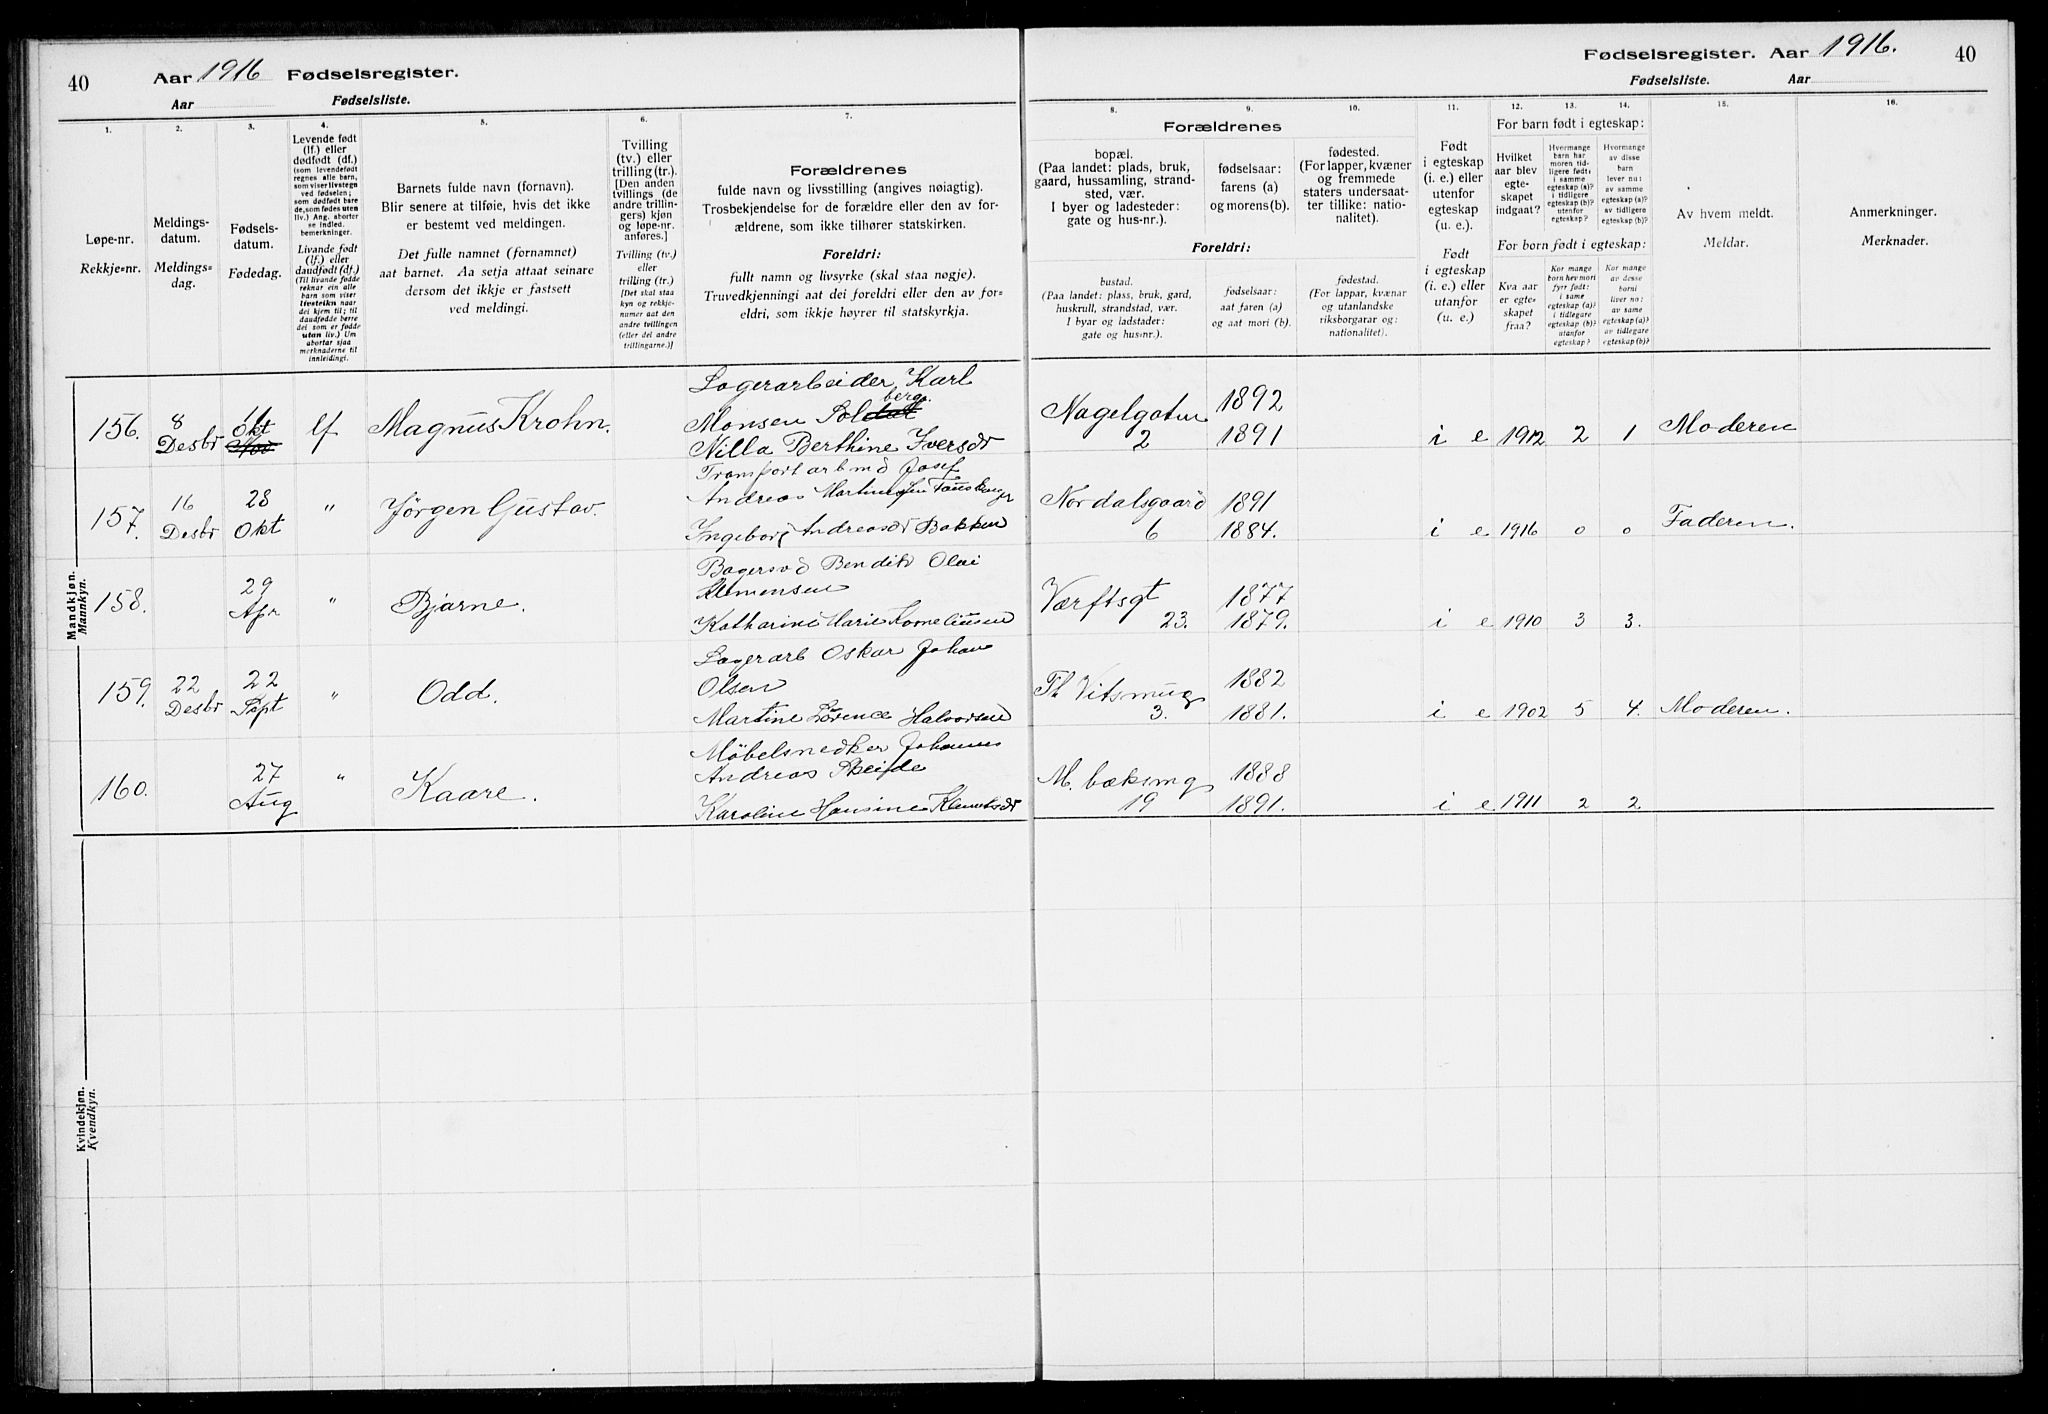 40 Aar 1916 Fødselsregister.
Aar Fødselsliste.
1.
2.
3.
4.
5.
6.
7.
Løpe-nr.
Rekkje=nr.
Meldings-
datum.
Meldings=
dag.
Fødsels-
datum.
Fødedag.
Levende født
(lf.) eller
dødfødt (df.)
(som levendefødt
regnes alle barn,
som viser livstegn
ved fødselen;
som dødfødt bare
de, som fødes uten
liv.) Ang. aborter
se indled.
bemerkninger.
Livande født
(lf.) eller
daudfødt (df.)
(Til livande fødde
reknar ein alle
barn som viser
livsteikn naar
dei kjem til; til
daudfødde berre
dei som er fødde
utan liv.) Um
abortar sjaa
merknaderne til
innleidingi.
Barnets fulde navn (fornavn).
Blir senere at tilføie, hvis det ikke
er bestemt ved meldingen.
Det fulle namnet (fornamnet)
aat barnet. Aa setja attaat seinare
dersom det ikkje er fastsett
ved meldingi.
Tvilling
(tv.) eller
trilling (tr.).
[Den anden
tvillings (de
andre trillin-
gers) kjøn
og løpe-nr.
anføres.]
Tvilling (tv.)
eller
trilling (tr.)
[Det skal staa
kyn og rekkje-
numer aat den
andre tvillingen
(eller dei andre
trillingarne.)]
Forældrenes
fulde navn og livsstilling (angives nøiagtig).
Trosbekjendelse for de forældre eller den av for-
ældrene, som ikke tilhører statskirken.
Foreldri:
fullt namn og livsyrke (skal staa nøgje).
Truvedkjenningi aat dei foreldri eller den av for=
eldri, som ikkje høyrer til statskyrkja.
Mandkjøn.
Mannkyn.
156. 8 Desbr 11 Okt Nov lf Magnus Krohn. Lagerarbeider Karl
Monsen Soldat berg
Nilla Berthine Iversdr
157. 16 Desbr 28 Okt " Jørgen Gustav. Transportarbmd Josef
Andreas Martinsen
Ingeborg Andreasdr Bakken
158. 29 Apr " Bjarne. Bendik Olai
Klemensen
Katharine Marie Korneliussen
159. 22 Desbr 22 Sept " Odd. Lagerarb Oskar Johan
Olsen
Martine Lorence Halvorsen
160. 27 Aug " Kaare. Møbelsnedker Johannes
Andreas Skeide
Karoline Hansine
Kvindekjøn.
Kvendkyn.
Fødselsregister. Aar 1916. 40
Fødselsliste. Aar
8.
9.
10.
11.
12.
13.
14.
15.
16.
Forældrenes
bopæl.
(Paa landet: plads, bruk,
gaard, hussamling, strand-
sted, vær.
I byer og ladesteder:
gate og hus-nr.).
fødselsaar:
farens (a)
og morens (b).
fødested.
(For lapper, kvæner
og fremmede
staters undersaat-
ter tillike: natio-
nalitet).
Foreldri:
bustad.
(Paa landet: plass, bruk, gard,
huskrull, strandstad, vær.
I byar og ladstader:
gate og hus=nr.).
fødselsaar:
aat faren (a)
og aat mori (b).
fødestad.
(For lappar, kvænar
og utanlandske
riksborgarar og:
nationalitet).
Født
i egteskap
(i. e.) eller
utenfor
egteskap
(u. e.).
Født
i egteskap
(i. e.) eller
utanfor
(u. e.)
For barn født i egteskap:
Hvilket
aar blev
egte-
skapet
indgaat?
Hvormange
barn har
moren tid-
ligere født:
i samme
egteskap (a)?
i tidligere
egteskap (b)?
utenfor
egteskap?
Hvormange
av disse
barn
lever nu:
av samme
egteskap (a)?
av tidligere
egteskap (b)?
For born født i egteskap:
Kva aar
er egte=
skapet
fraa?
Kor mange
born hev mori
fyrr født:
i same
egteskap (a)?
i tidlegare
egteskap (b)?
utanfor
egteskap?
Kor mange
av desse
borni
liver no:
av same
egteskap (a)?
av tidlegare
egteskap (b)?
Av hvem meldt.
Meldar.
Anmerkninger.
Merknader.
Nagelgaten 2 1892 1891 i e 1912 2 1 Moderen
Nordalsgaard 6 1891 1884. i e 1916 0 0 Faderen.
Værftsgt 23. 1877 1879. i e 1910 3 3.
3. 1882 1881. i e 1902 5 4. Moderen.
19 1888 1891. i e 1911 2 2